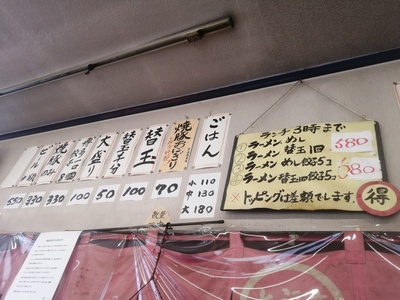 ごはん
小 110
中 130
大 180
焼豚おにぎり
70
替玉
100
替玉半分
50
大盛り
100
330
焼豚のみ
330
ビール
550
ランチ3時まで
①ラーメン めし
②ラーメン 替玉1回
580
ラーメン めし餃子5コ
ラーメン 替玉1回餃子5コ
680
※トッピングは差額でします。
得